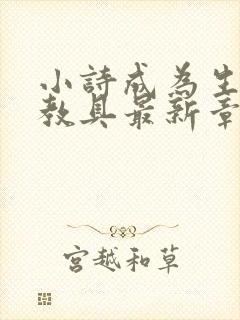 小詩成為生
教具最新章
宮越和草